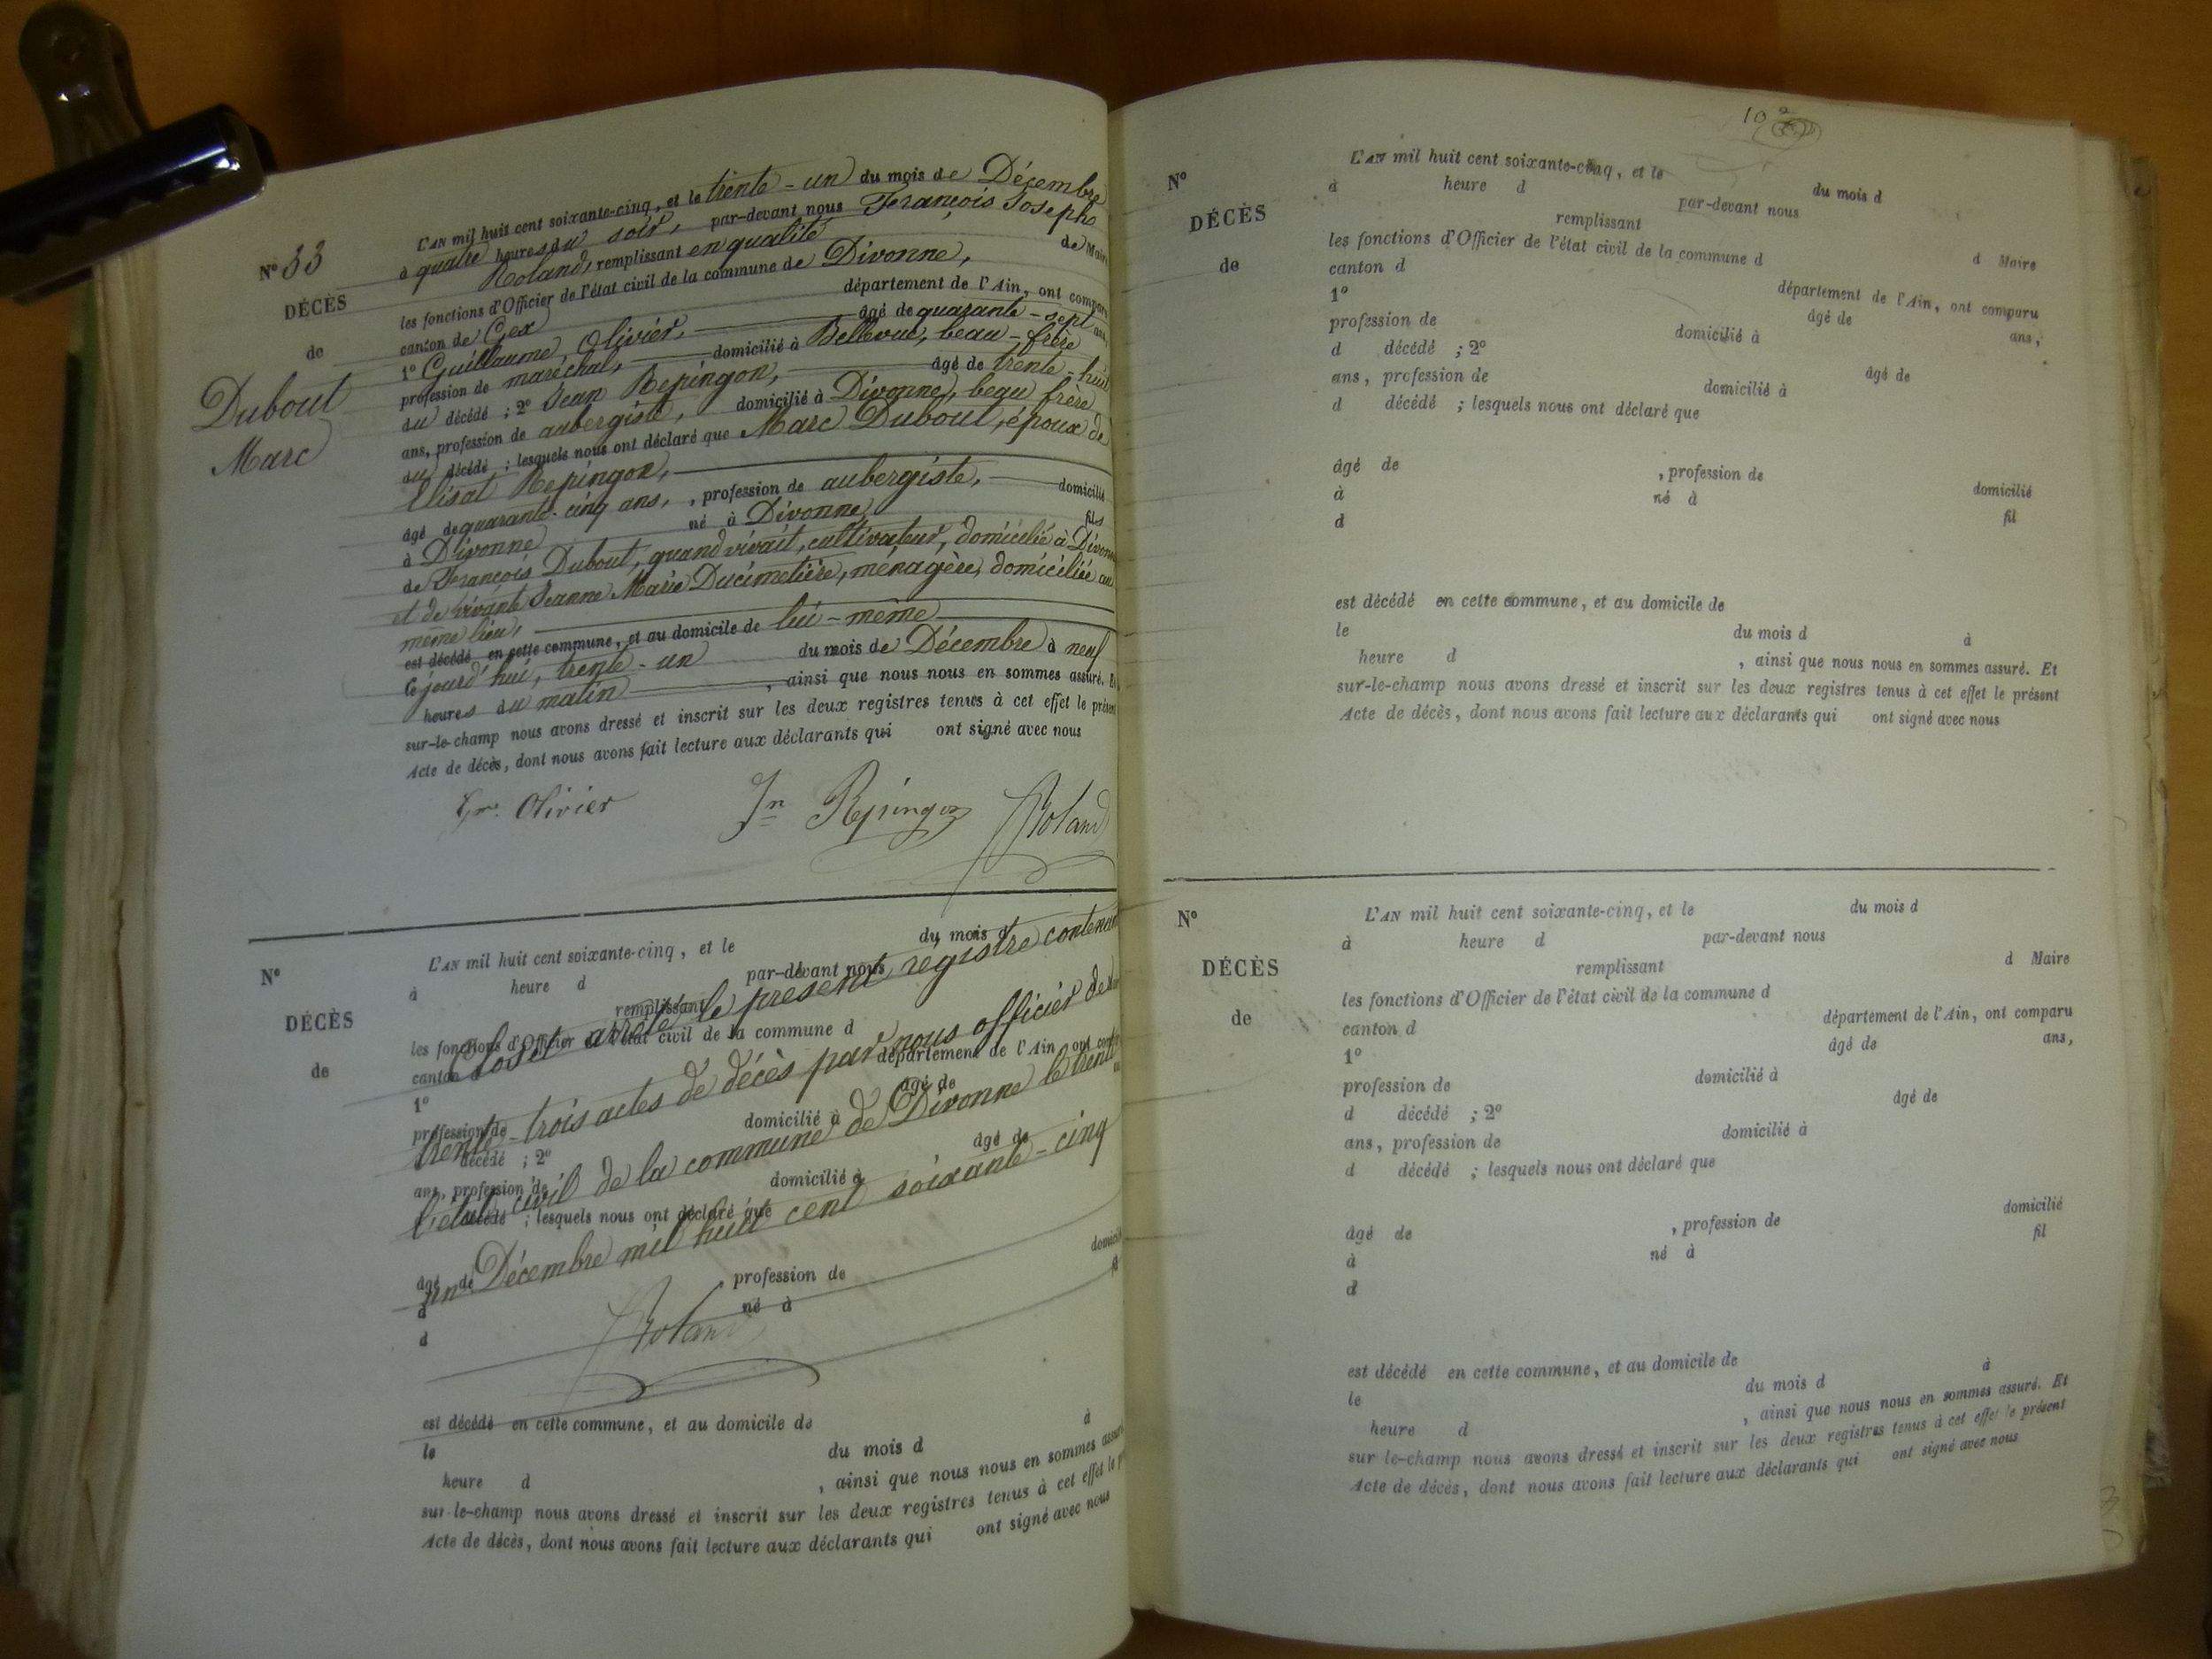 N° 33
DÉCÈS
de
Dubout
Marc
L'AN mil huit cent soixante-cinq, et le trente-un du mois de Décembre
à quatre heures du soir, par-devant nous François Joseph
Roland, remplissant en qualité de Maire
les fonctions d'Officier de l'état civil de la commune de Divonne,
canton de Gex département de l'Ain, ont comparu
1° Guillaume Olivier, âgé de quarante-sept ans,
profession de maréchal, domicilié à Bellevue, beau-frère
du décédé ; 2° Jean Repingon, âgé de trente-huit
ans, profession de aubergiste, domicilié à Divonne, beau frère
du décédé ; lesquels nous ont déclaré que Marc Dubout, époux de
Elisat Repingon,
âgé de quarante-cinq ans, , profession de aubergiste, domicilié
à Divonne né à Divonne fils
de François Dubout, quand vivait, cultivateur, domicilié à Divonne
et de vivante Jeanne Marie Ducimetière, ménagère, domiciliée au
même lieu,
est décédé en cette commune, et au domicile de lui-même
ce jourd'hui, trente-un du mois de Décembre à neuf
heures du matin , ainsi que nous nous en sommes assuré. Et
sur-le-champ nous avons dressé et inscrit sur les deux registres tenus à cet effet le présent
Acte de décès, dont nous avons fait lecture aux déclarants qui ont signé avec nous
Olivier Jn Repingon Roland
N°
DÉCÈS
de
L'AN mil huit cent soixante-cinq, et le du mois d
à heure d par-devant nous
remplissant
les fonctions d'Officier de l'état civil de la commune d
canton d département de l'Ain, ont comparu
1° âgé de
profession de domicilié à
décédé ; 2° âgé de
ans, profession de domicilié à
décédé ; lesquels nous ont déclaré que
âgé de profession de domicilié
à né à fil
d
Clos et arrêté le présent registre contenant
trente-trois actes de décès par nous officier de
l'état civil de la commune de Divonne le trente
un Décembre mil huit cent soixante-cinq
Roland
est décédé en cette commune, et au domicile de
le du mois d à
heure d , ainsi que nous nous en sommes assuré
sur-le-champ nous avons dressé et inscrit sur les deux registres tenus à cet effet le
Acte de décès, dont nous avons fait lecture aux déclarants qui ont signé avec nous
102
N°
DÉCÈS
de
L'AN mil huit cent soixante-cinq, et le du mois d
à heure d par-devant nous
remplissant d Maire
les fonctions d'Officier de l'état civil de la commune d
canton d département de l'Ain, ont comparu
1° âgé de ans,
profession de domicilié à
d décédé ; 2° âgé de
ans, profession de domicilié à
d décédé ; lesquels nous ont déclaré que
âgé de , profession de domicilié
à né à fil
d
est décédé en cette commune, et au domicile de
le du mois d à
heure d , ainsi que nous nous en sommes assuré. Et
sur-le-champ nous avons dressé et inscrit sur les deux registres tenus à cet effet le présent
Acte de décès, dont nous avons fait lecture aux déclarants qui ont signé avec nous
N°
DÉCÈS
de
L'AN mil huit cent soixante-cinq, et le du mois d
à heure d par-devant nous
remplissant d Maire
les fonctions d'Officier de l'état civil de la commune d
canton d département de l'Ain, ont comparu
1° âgé de ans,
profession de domicilié à
d décédé ; 2° âgé de
ans, profession de domicilié à
d décédé ; lesquels nous ont déclaré que
âgé de , profession de domicilié
à né à fil
d
est décédé en cette commune, et au domicile de
le du mois d à
heure d , ainsi que nous nous en sommes assuré. Et
sur le-champ nous avons dressé et inscrit sur les deux registres tenus à cet effet le présent
Acte de décès, dont nous avons fait lecture aux déclarants qui ont signé avec nous